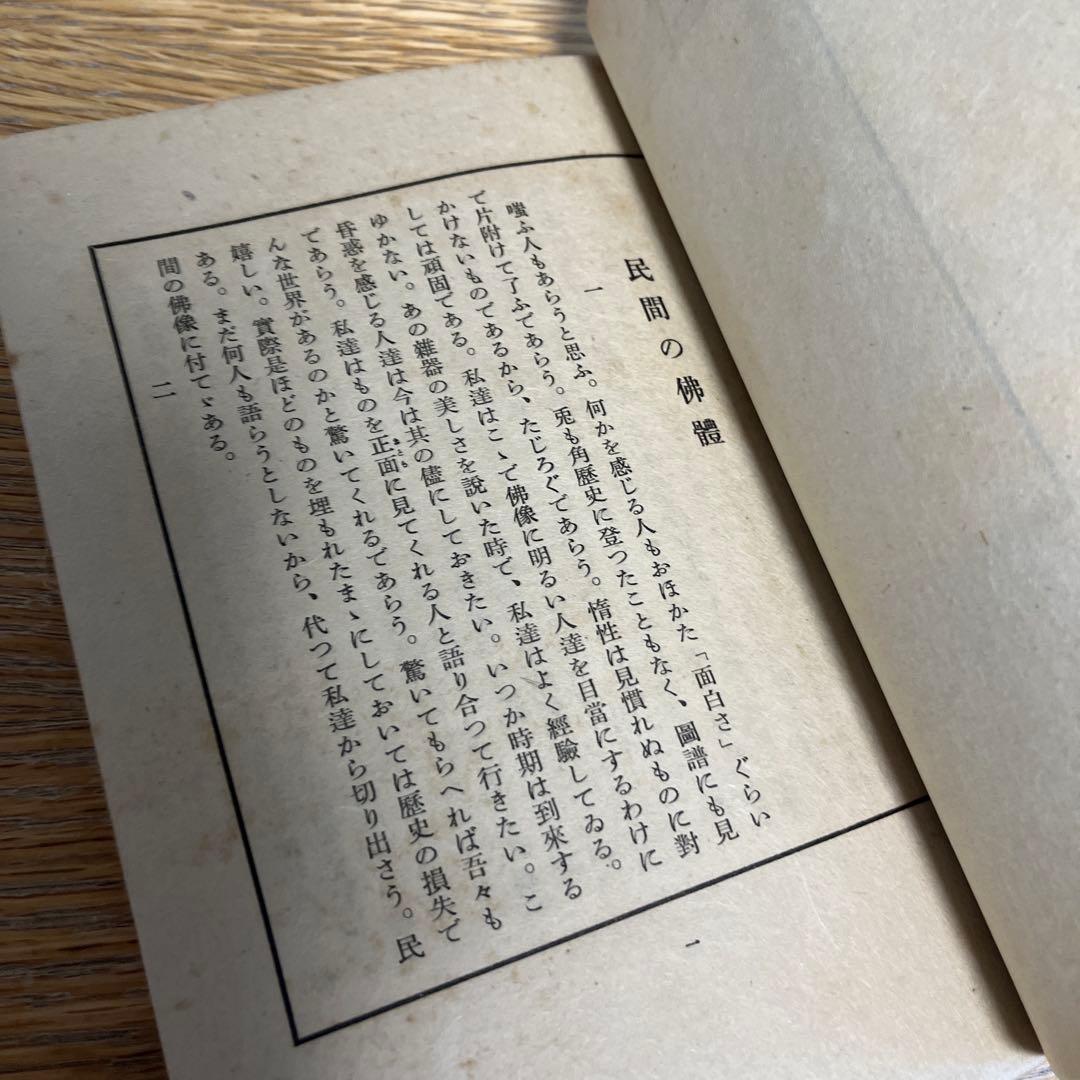 民間の佛體
一
嗤ふ人もあらうと思ふ。何かを感じる人もおほかた「面白さ」ぐらい
で片附けて了ふであらう。兎も角歷史に登つたこともなく、圖譜にも見
かけないものであるから、たじろぐであらう。惰性は見慣れぬものに對
しては頑固である。私達はこゝで佛像に明るい人達を目當にするわけに
ゆかない。あの雜器の美しさを說いた時で、私達はよく經驗してゐる。
昏惑を感じる人達は今は其の儘にしておきたい。いつか時期は到來する
であらう。私達はものを正面に見てくれる人と語り合つて行きたい。こ
んな世界があるのかと驚いてくれるであらう。驚いてもらへれば吾々も
嬉しい。實際是ほどのものを埋もれたまゝにしておいては歷史の損失で
ある。まだ何人も語らうとしないから、代つて私達から切り出さう。民
間の佛像に付てゞある。
二
一